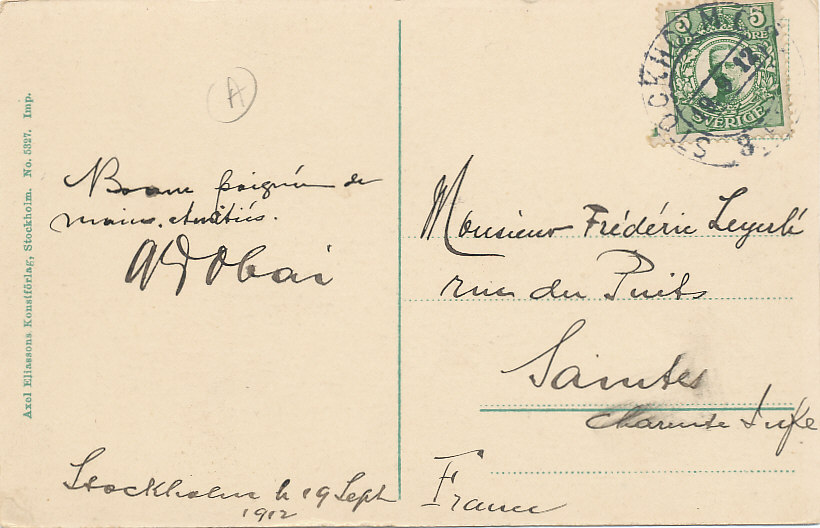 A
Bonne poignée de
mains. Amitiés.
Stockholm le 19 Sept
1912
Axel Eliassons Konstförlag, Stockholm. No. 5327. Imp.
5 5
ÖRE
SVERIGE
STOCKHOLM
12
Monsieur Frédéric
rue du Puits
Saintes
Charente Infre
France